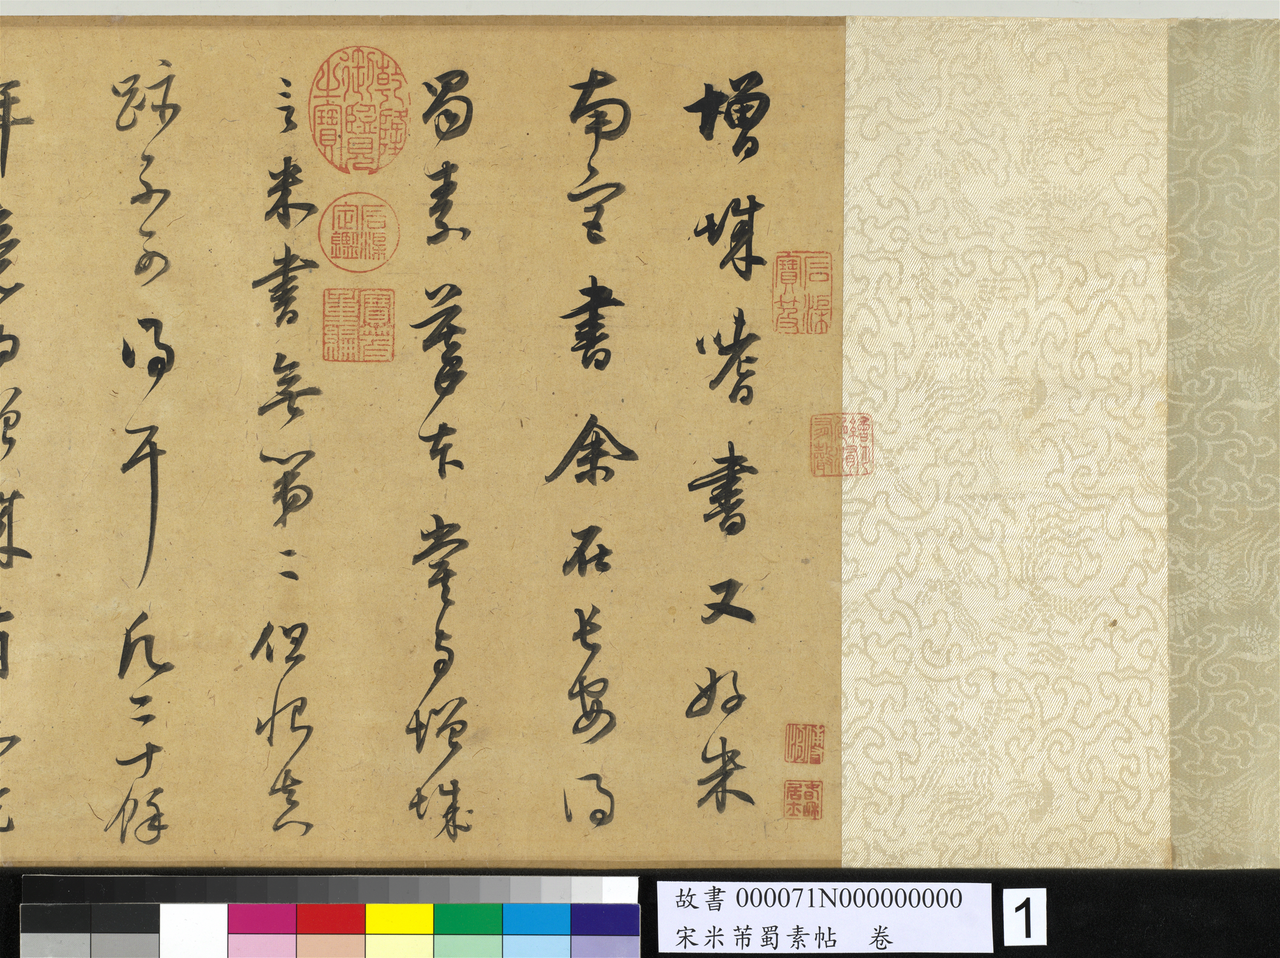 增城嗜書又好米
南宮書余在長安得
蜀素摹本嘗与增城
言米書無第二但恨真
跡不可得耳凡二十餘
年竟為增城有
石渠寶笈
乾隆御覽之寶
石渠定鑑
寶笈重編
故書 000071N000000000
宋米芾蜀素帖 卷
1